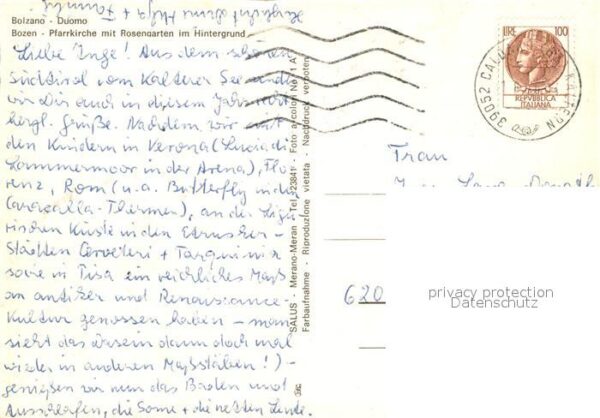 herzlichst deine Helga + Familie
Bolzano - Duomo
Bozen - Pfarrkirche mit Rosengarten im Hintergrund
Liebe Inge! Aus dem schönen
Südtirol vom Kalterer See senden
wir Dir auch in diesem Jahr sehr
herzl. Grüße. Nachdem wir mit
den Kindern in Verona (Lucia di
Lammermoor in der Arena), Flo-
renz, Rom (u.a. Butterfly in den
Caracalla-Thermen), an der Ligu-
rischen Küste in den Etrusker-
Städten Cerveteri + Tarquinia
sowie in Pisa ein reichliches Maß
an antiker und Renaissance-
Kultur genossen haben - man
sieht das wissen dann doch mal
wieder in anderen Maßstäben!) -
genießen wir nun das Baden und
Ausschlafen, die Sonne + die netten Leute.
SALUS - Merano-Meran - Tel. 23841 - Foto a colori No. 1 A
Farbaufnahme - Riproduzione vietata - Nachdruck verboten
LIRE 100
REPVBBLICA
ITALIANA
39052 CALD KALTERN
Frau
620
privacy protection
Datenschutz